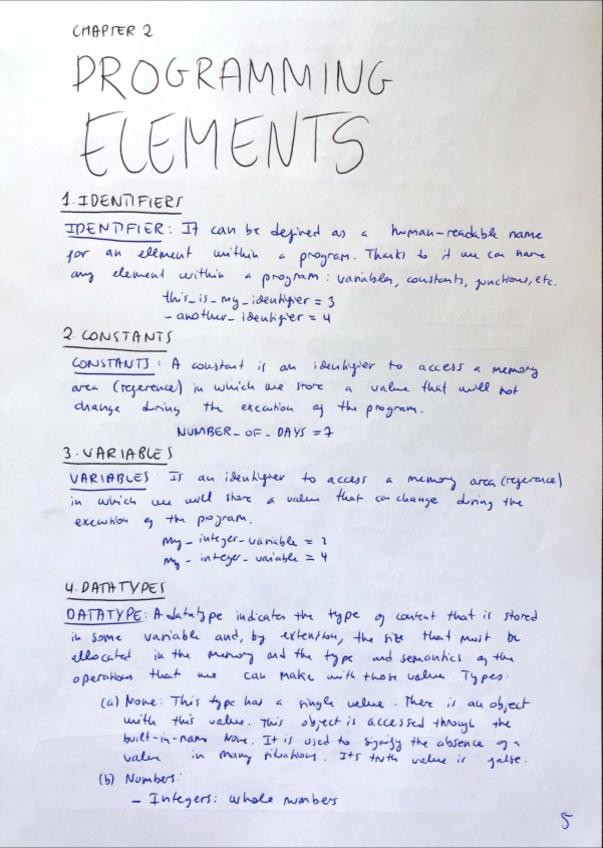 CHAPTER 2
PROGRAMMING
ELEMENTS
1. IDENTIFIERS
IDENTIFIER: It can be defined as a human-readable name
for an element within a program. Thanks to it we can name
any element within a program: variables, constants, functions, etc.
this_is_my_identifier = 3
_another_identifier = 4
2. CONSTANTS
CONSTANTS: A constant is an identifier to access a memory
area (reference) in which we store a value that will not
change during the execution of the program.
NUMBER_OF_DAYS = 7
3. VARIABLES
VARIABLES: Is an identifier to access a memory area (reference)
in which we will store a value that can change during the
execution of the program.
my_integer_variable =
my_integer_variable = 4
4. DATATYPES
DATATYPE: A datatype indicates the type of content that is stored
in some variable and, by extension, the size that must be
allocated in the memory and the type and semantics of the
operations that we can make with those value. Types:
(a) None: This type has a single value. There is an object
with this value. This object is accessed through the
built-in-name None. It is used to signify the absence of a
value in many situations. Its truth value is false.
(b) Numbers:
- Integers: whole numbers
5